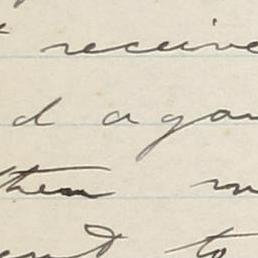 receive
d agai
them m
to